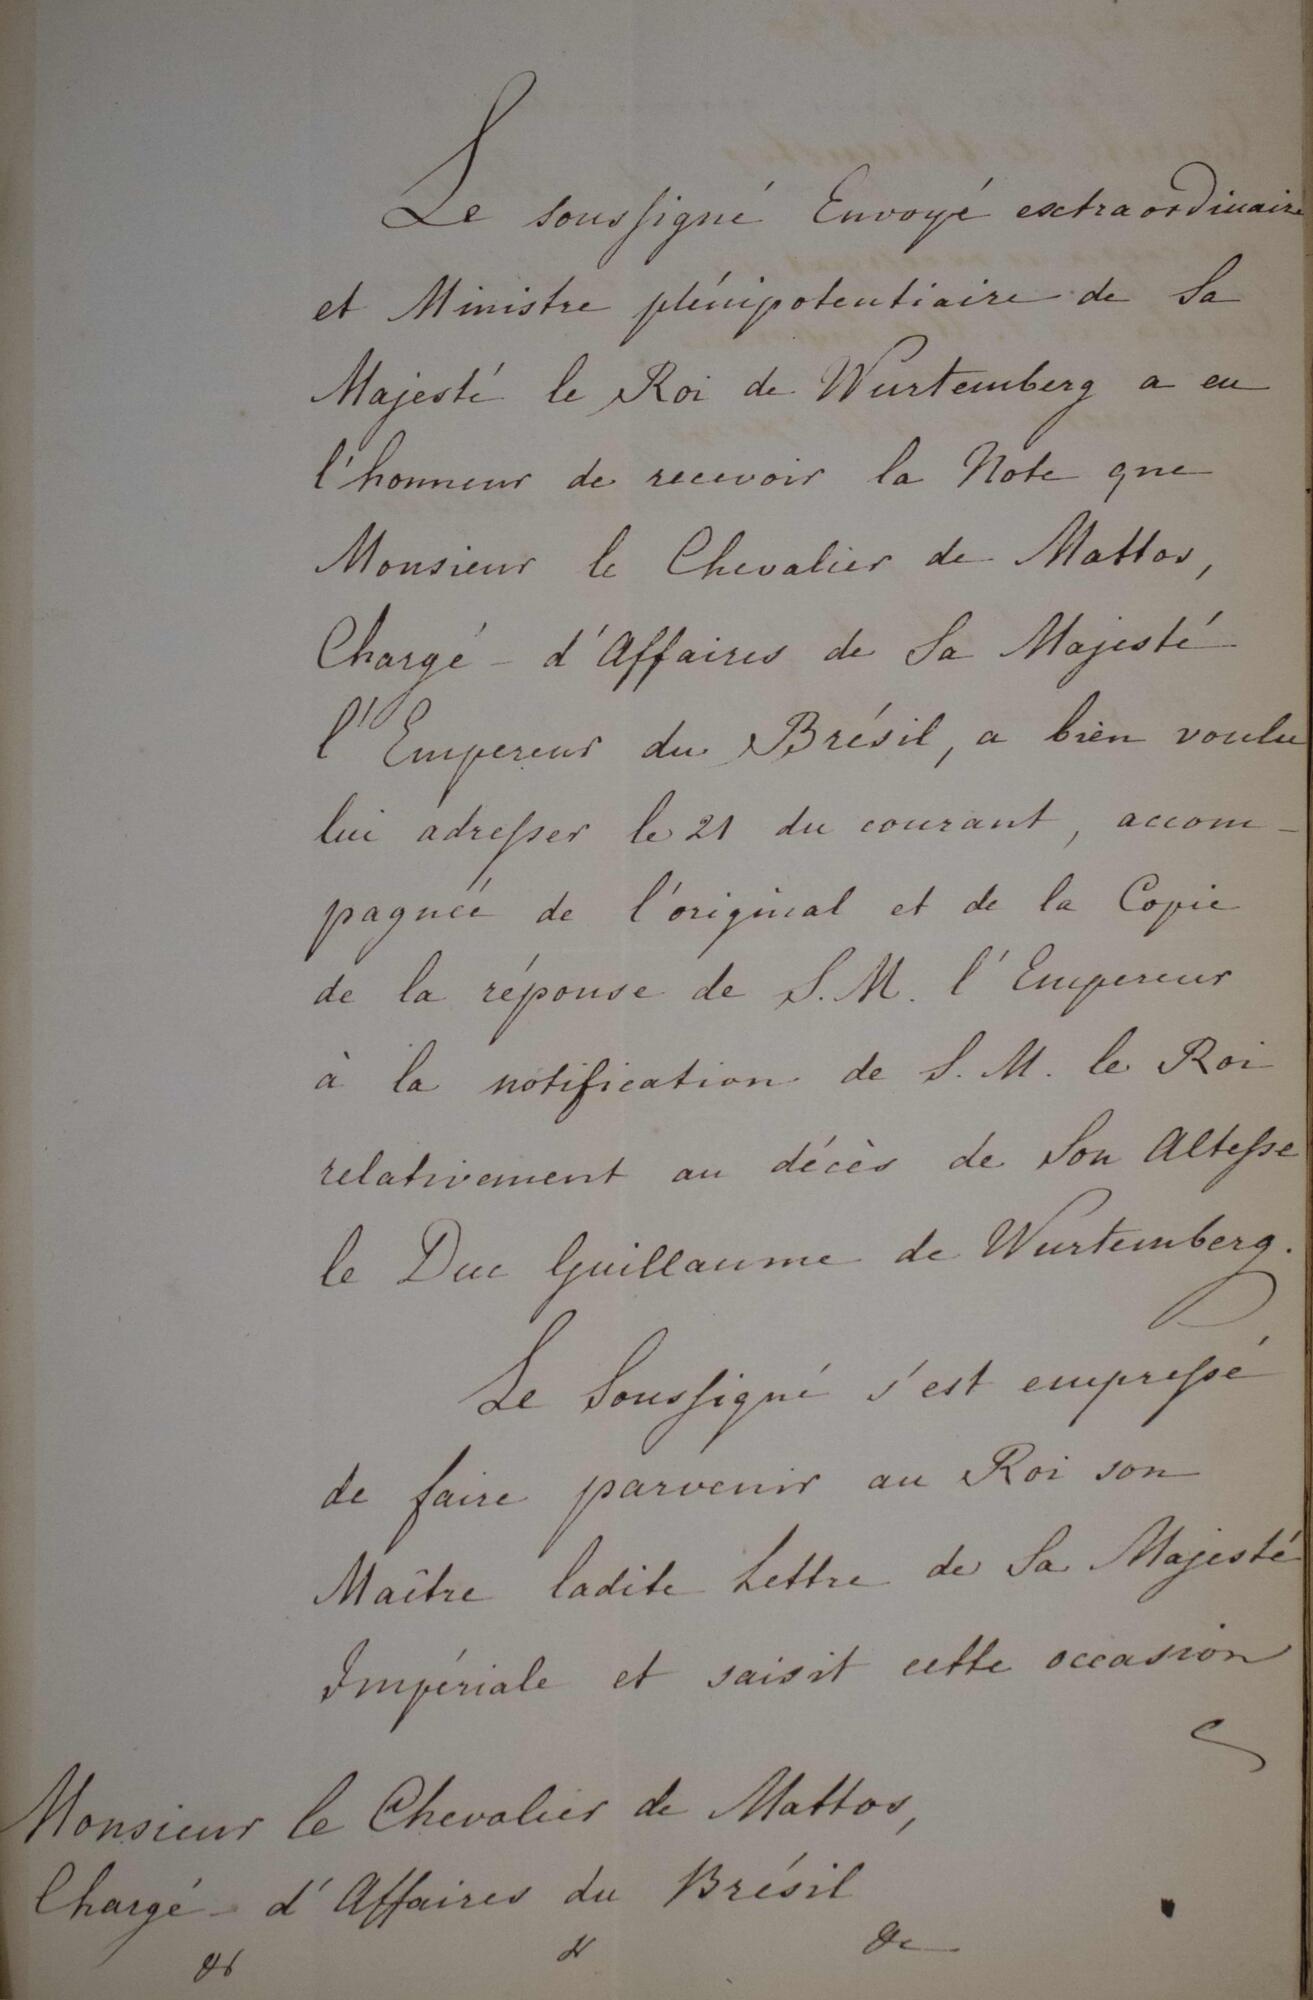 Le soussigné Envoyé extraordinaire
et Ministre plénipotentiaire de Sa
Majesté le Roi de Wurtemberg a eu
l'honneur de recevoir la Note que
Monsieur le Chevalier de Mattos,
Chargé-d'Affaires de Sa Majesté
l'Empereur du Brésil, a bien voulu
lui adresser le 21 du courant, accom-
pagnée de l'original et de la Copie
de la réponse de S. M. l'Empereur
à la notification de S. M. le Roi
relativement au décès de Son Altesse
le Duc Guillaume de Wurtemberg.
Le Soussigné s'est empressé
de faire parvenir au Roi son
Maître ladite Lettre de Sa Majesté
Impériale et saisit cette occasion
Monsieur le Chevalier de Mattos,
Chargé-d'Affaires du Brésil
&c &c &c